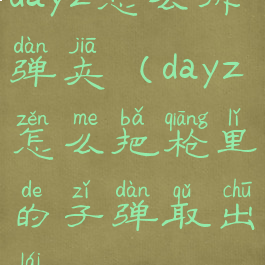 dayz怎么
dàn jiā
弹夹 (dayz
zěn me bǎ qiāng lǐ
怎么把枪里
de zǐ dàn qǔ chū
的子弹取出
lái